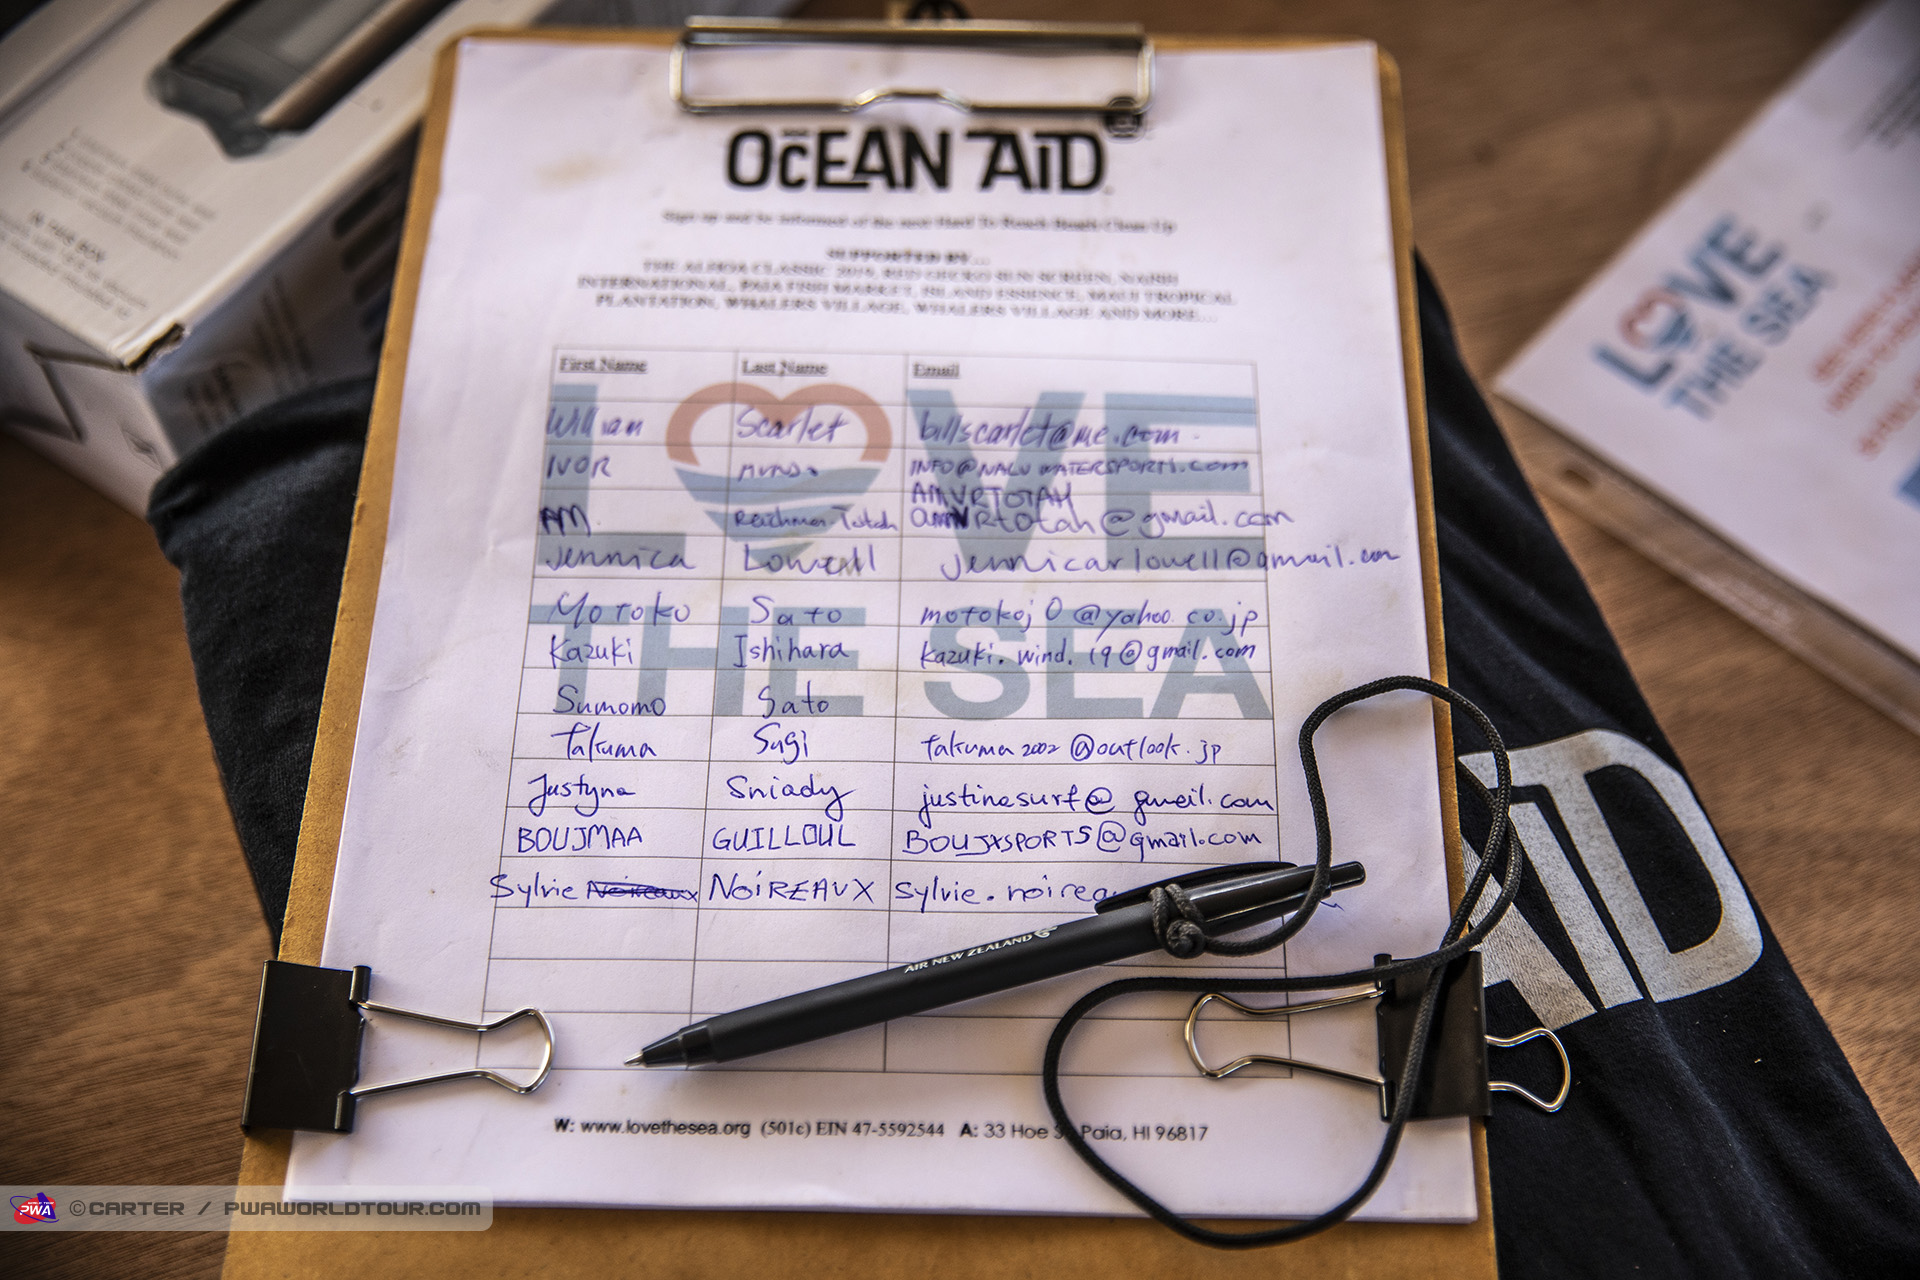 OCEAN AID
Sign up and be informed of the next Hard To Reach Beach Clean Up
SUPPORTED BY...
THE ALOHA CLASSIC 2019, RED GECKO SUN SCREEN, NAISH
INTERNATIONAL, PAIA FISH MARKET, ISLAND ESSENCE, MAUI TROPICAL
PLANTATION, WHALERS VILLAGE, WHALERS VILLAGE AND MORE...
First Name Last Name Email
LOVE
THE SEA
William Scarlet billscarlet@me.com
IVOR INFO@NALU WATERSPORTS.com
AMVRTOTAH
AM. Totah amVRtotah@gmail.com
Jennica Lowell jennicarlowell@gmail.com
Motoko Sato motokoj0@yahoo.co.jp
Kazuki Ishihara kazuki.wind.19@gmail.com
Sumomo Sato
Takuma Sugi takuma2002@outlook.jp
Justyna Sniady justinesurf@gmeil.com
BOUJMAA GUILLOUL BOUJXSPORTS@gmail.com
Sylvie Noireaux NOiREAUX Sylvie.noirea
AIR NEW ZEALAND
W: www.lovethesea.org (501c) EIN 47-5592544 A: 33 Hoe S Paia, HI 96817
LOVE
THE SEA
AID
IN THIS BOX
PWA © CARTER / PWAWORLDTOUR.COM